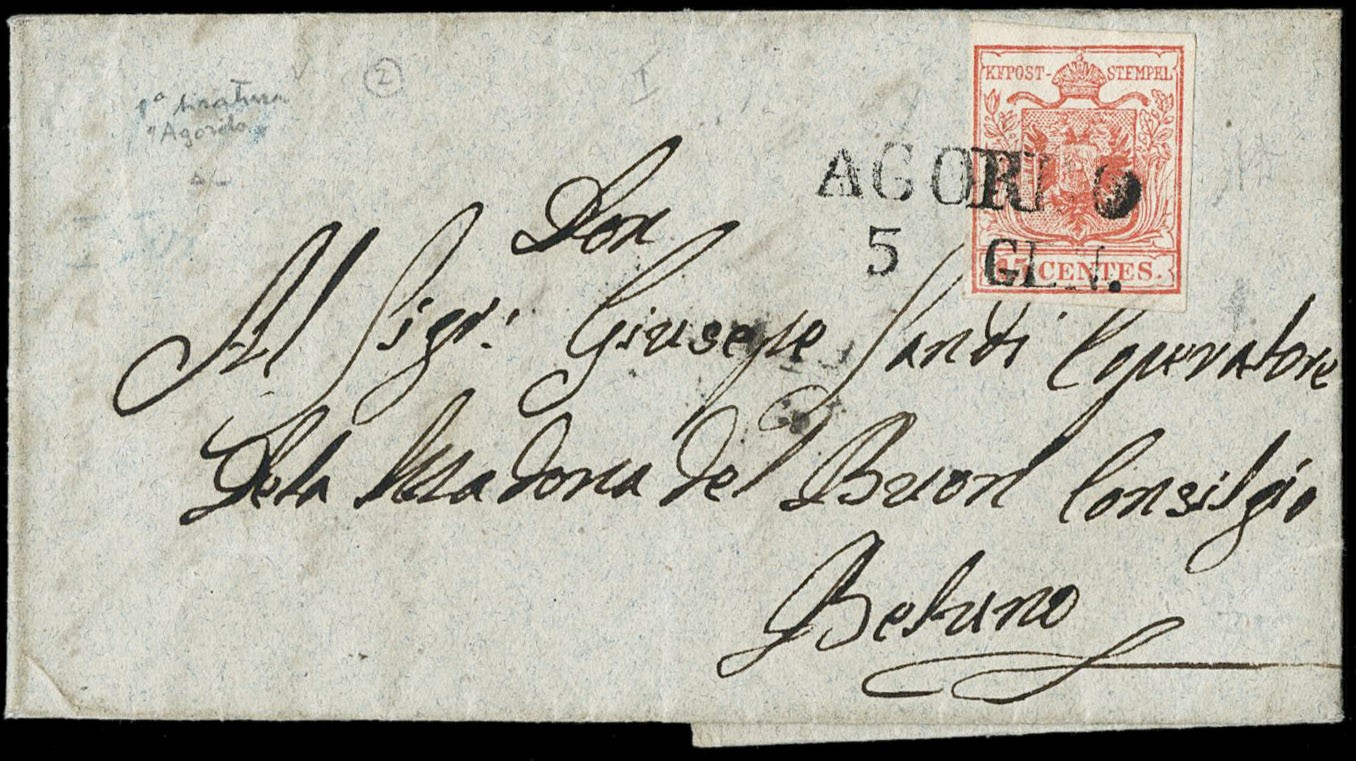 1ª tiratura
"Agordo
2
I
KKPOST-STEMPEL
15 CENTES.
AGORDO
5 GEN.
Don
Al Sigr: Giusepe Sandi Coperatore
Dela Madona del Buon Consilgio
Beluno